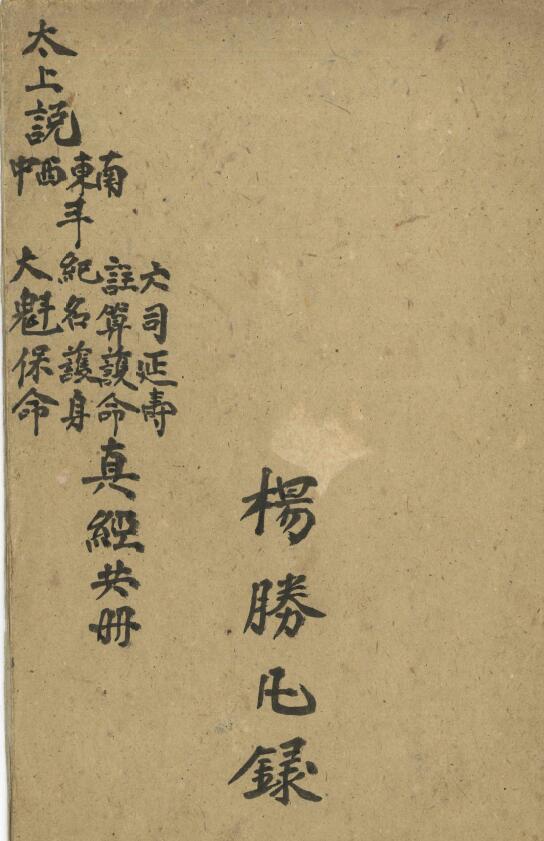 太上説
南東西中
斗
六司延壽
註算護命
紀名護身
大魁保命
真經共冊
楊勝録